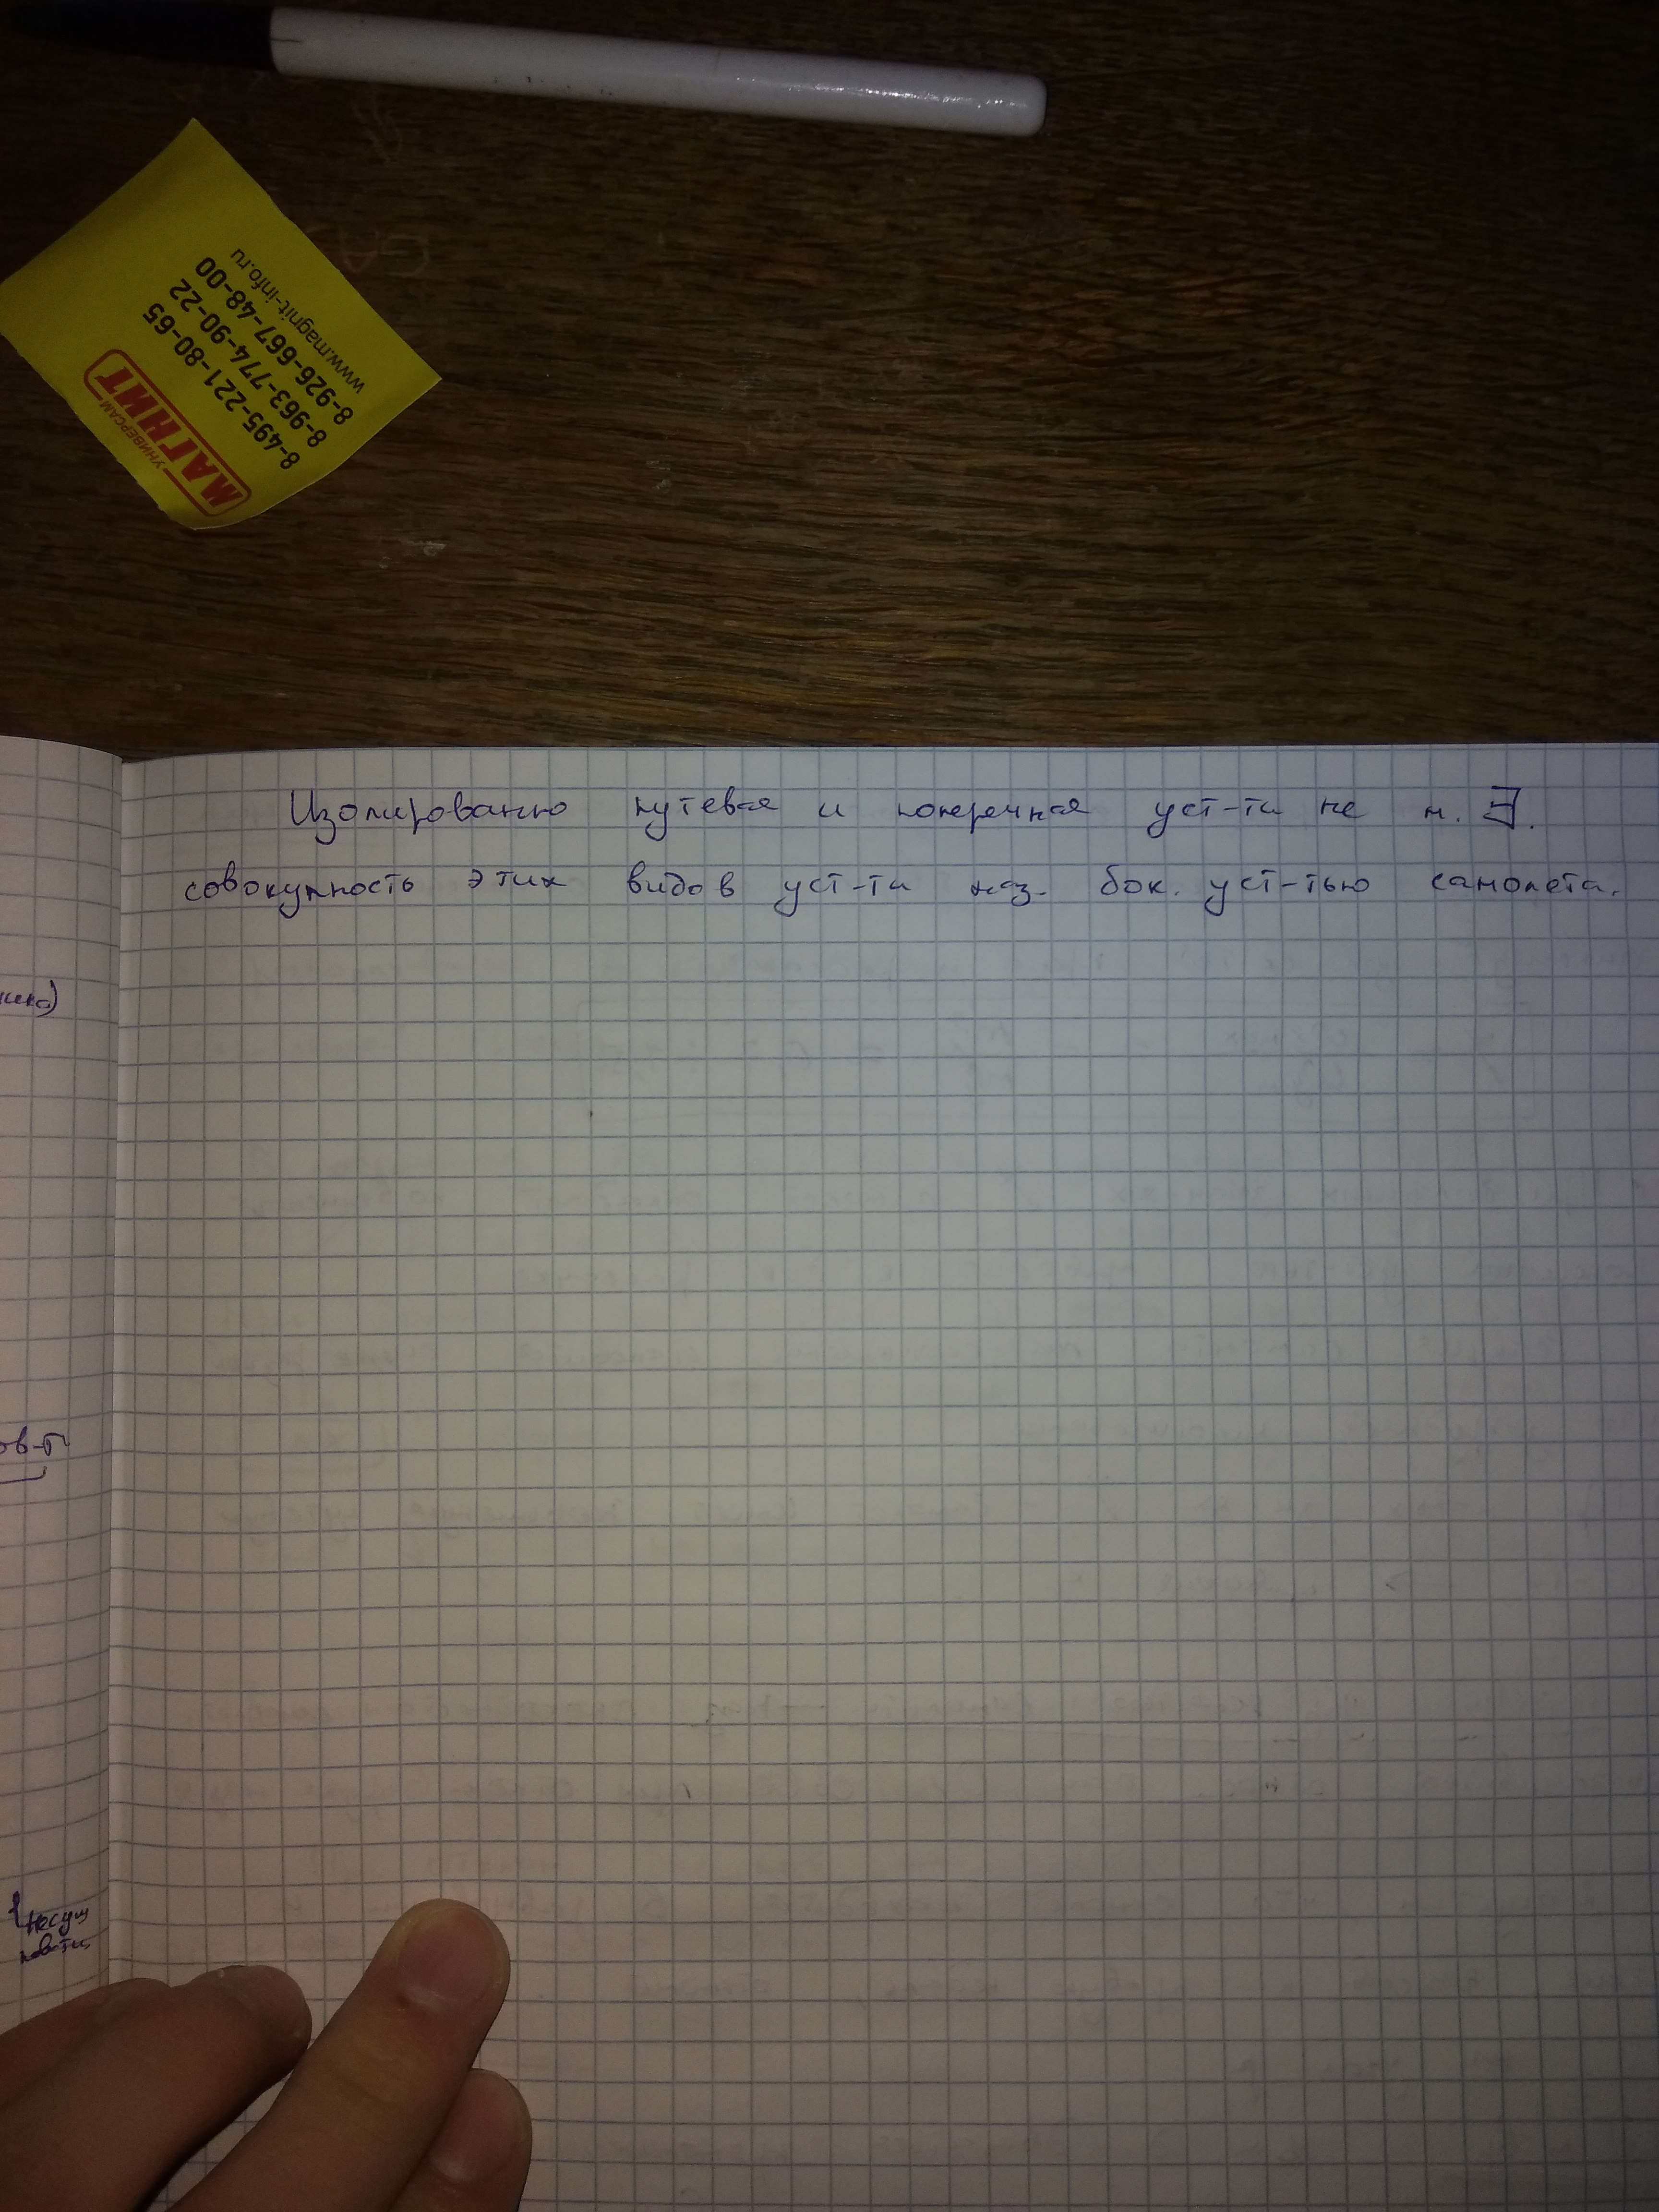 УНИВЕРСАМ
МАГНИТ
8-495-221-80-65
8-963-774-90-22
8-926-667-48-00
www.magnit-info.ru
Изолированно путевая и поперечная уст-ти не м. ∃.
совокупность этих видов уст-ти наз. бок. уст-тью самолета.
ов-т
несущ
пов-ти